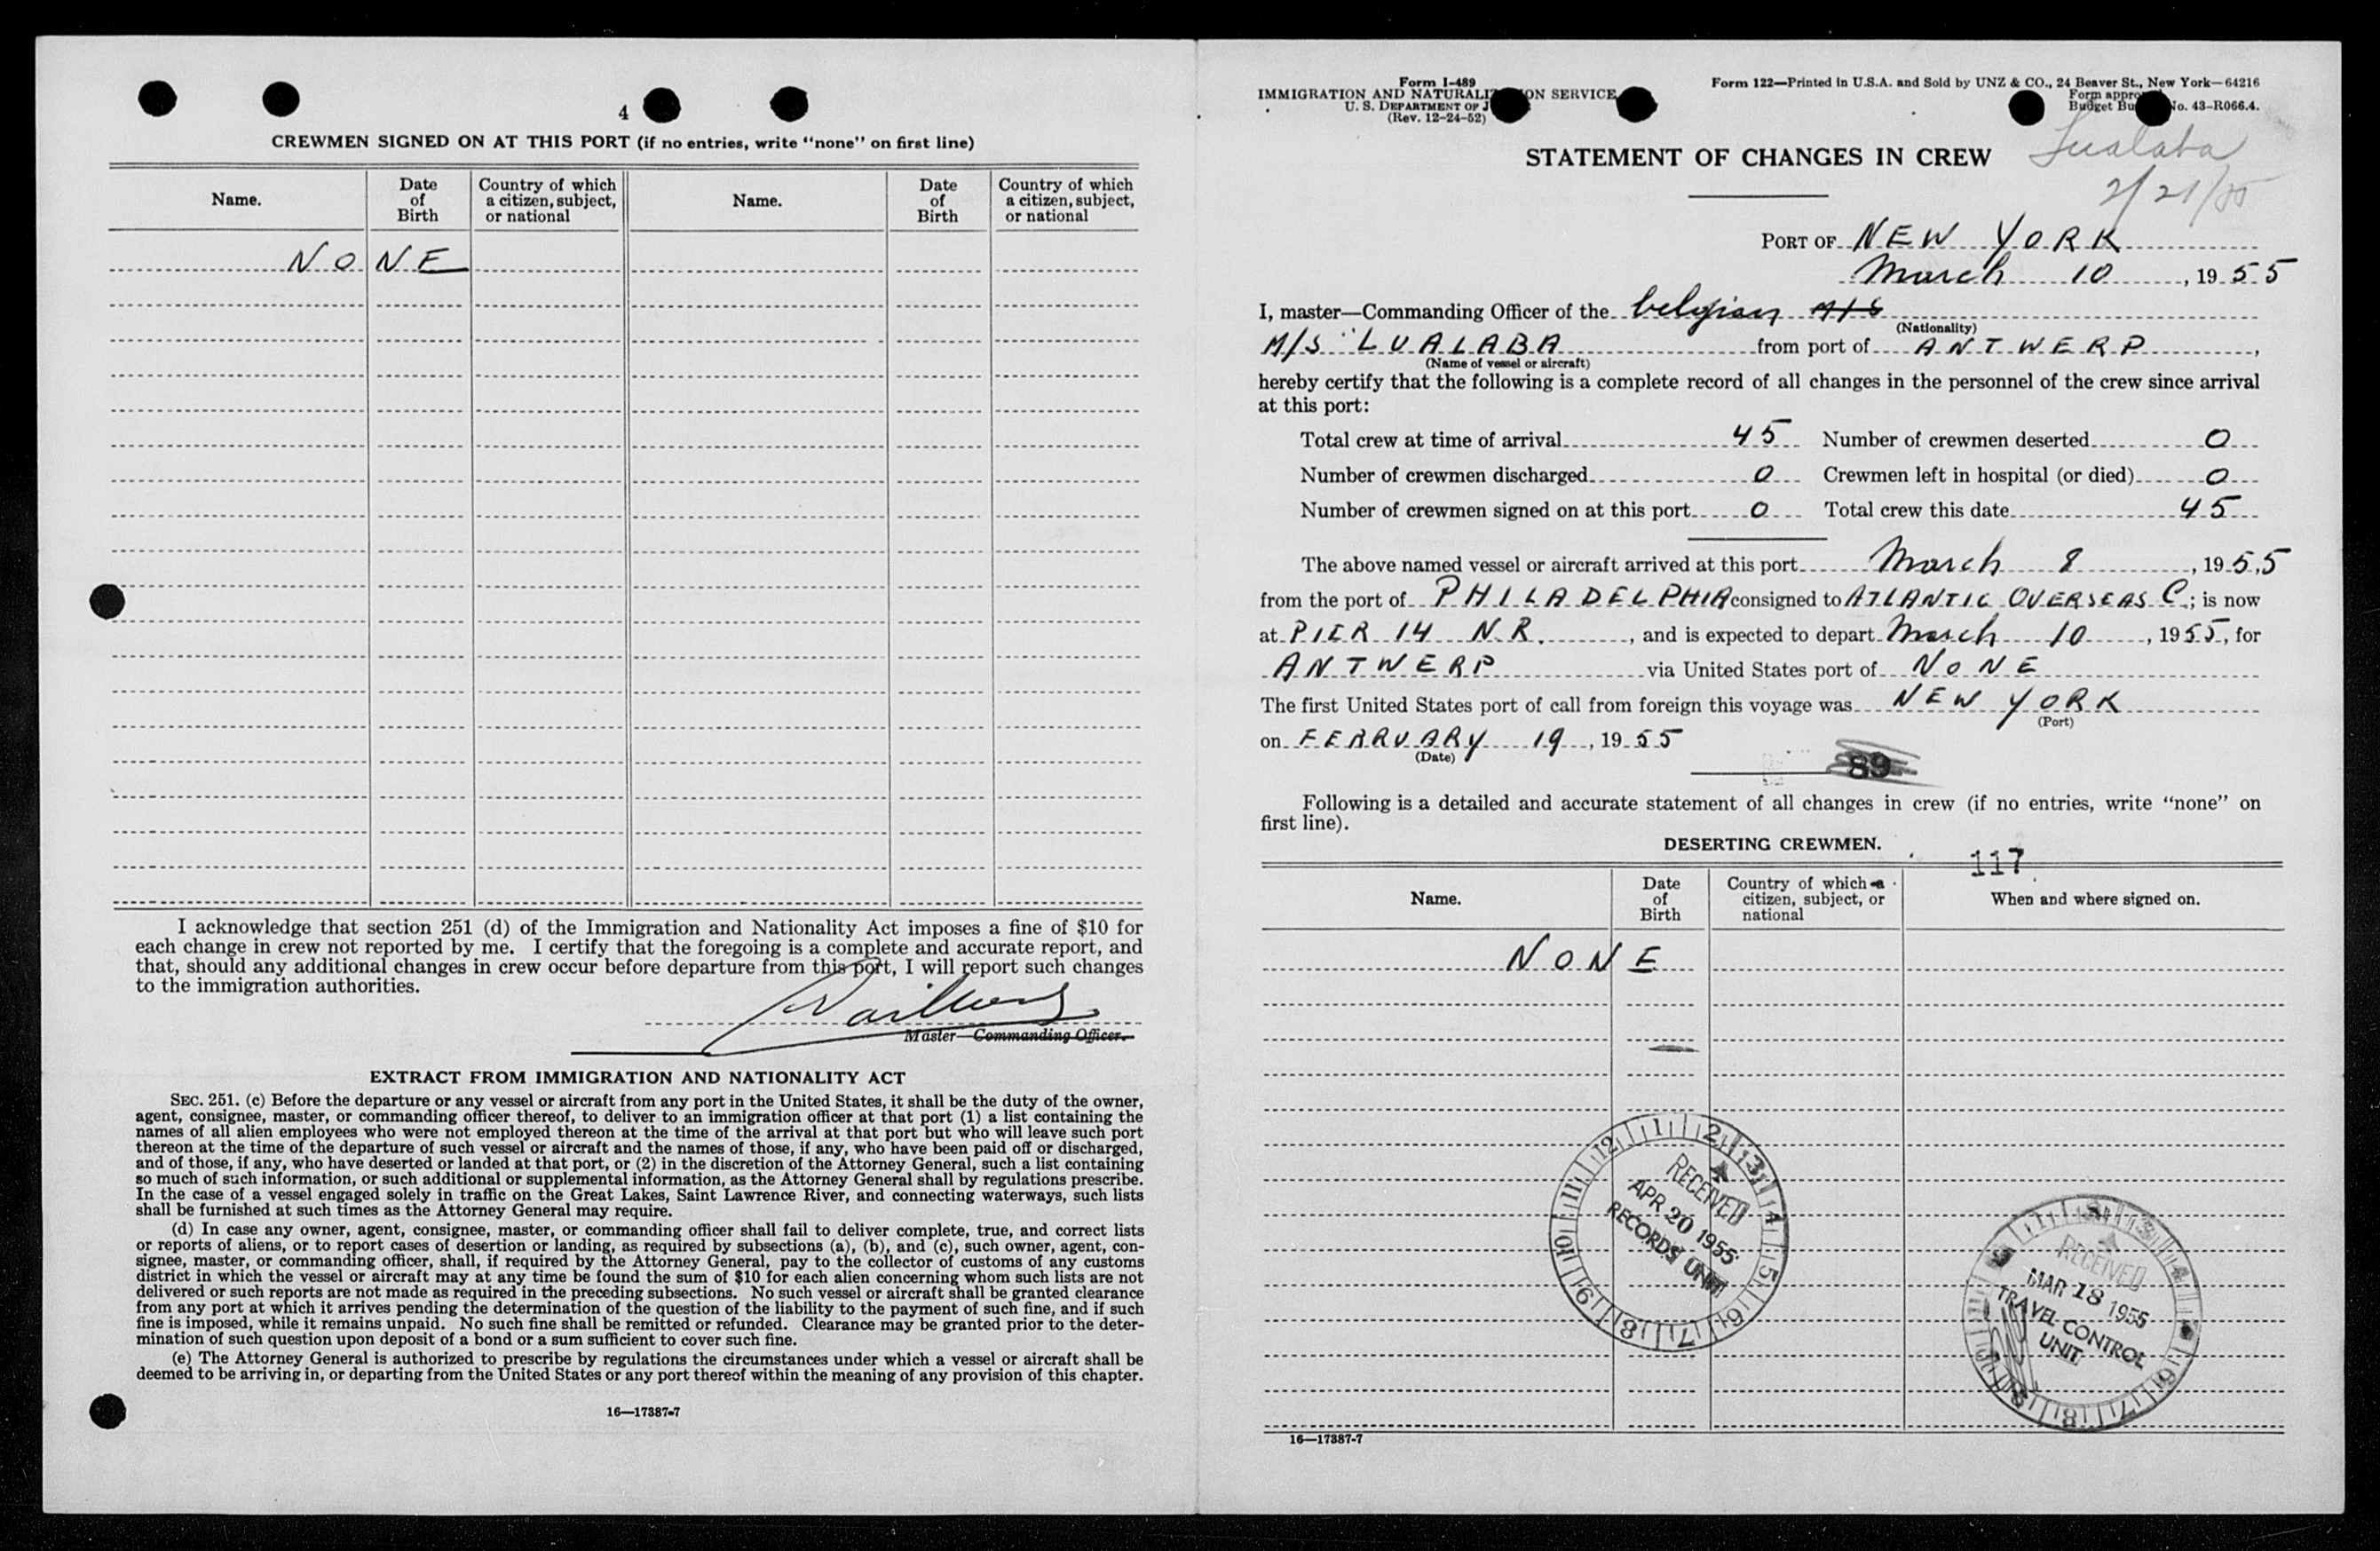 4
CREWMEN SIGNED ON AT THIS PORT (if no entries, write "none" on first line)
Name. Date of Birth Country of which a citizen, subject, or national Name. Date of Birth Country of which a citizen, subject, or national
NONE
I acknowledge that section 251 (d) of the Immigration and Nationality Act imposes a fine of $10 for
each change in crew not reported by me. I certify that the foregoing is a complete and accurate report, and
that, should any additional changes in crew occur before departure from this port, I will report such changes
to the immigration authorities.
Master—Commanding Officer.
EXTRACT FROM IMMIGRATION AND NATIONALITY ACT
SEC. 251. (c) Before the departure or any vessel or aircraft from any port in the United States, it shall be the duty of the owner,
agent, consignee, master, or commanding officer thereof, to deliver to an immigration officer at that port (1) a list containing the
names of all alien employees who were not employed thereon at the time of the arrival at that port but who will leave such port
thereon at the time of the departure of such vessel or aircraft and the names of those, if any, who have been paid off or discharged,
and of those, if any, who have deserted or landed at that port, or (2) in the discretion of the Attorney General, such a list containing
so much of such information, or such additional or supplemental information, as the Attorney General shall by regulations prescribe.
In the case of a vessel engaged solely in traffic on the Great Lakes, Saint Lawrence River, and connecting waterways, such lists
shall be furnished at such times as the Attorney General may require.
(d) In case any owner, agent, consignee, master, or commanding officer shall fail to deliver complete, true, and correct lists
or reports of aliens, or to report cases of desertion or landing, as required by subsections (a), (b), and (c), such owner, agent, con-
signee, master, or commanding officer, shall, if required by the Attorney General, pay to the collector of customs of any customs
district in which the vessel or aircraft may at any time be found the sum of $10 for each alien concerning whom such lists are not
delivered or such reports are not made as required in the preceding subsections. No such vessel or aircraft shall be granted clearance
from any port at which it arrives pending the determination of the question of the liability to the payment of such fine, and if such
fine is imposed, while it remains unpaid. No such fine shall be remitted or refunded. Clearance may be granted prior to the deter-
mination of such question upon deposit of a bond or a sum sufficient to cover such fine.
(e) The Attorney General is authorized to prescribe by regulations the circumstances under which a vessel or aircraft shall be
deemed to be arriving in, or departing from the United States or any port thereof within the meaning of any provision of this chapter.
16—17387-7
Form I-489
IMMIGRATION AND NATURALIZATION SERVICE
U. S. DEPARTMENT OF J
(Rev. 12-24-52)
Form 122—Printed in U.S.A. and Sold by UNZ & CO., 24 Beaver St., New York—64216
Form appro
Budget Bu No. 43-R066.4.
Lualaba
2/21/55
STATEMENT OF CHANGES IN CREW
PORT OF NEW YORK
March 10, 1955
I, master—Commanding Officer of the belgian M/S
(Nationality)
M/S LUALABA from port of ANTWERP,
(Name of vessel or aircraft)
hereby certify that the following is a complete record of all changes in the personnel of the crew since arrival
at this port:
Total crew at time of arrival 45 Number of crewmen deserted 0
Number of crewmen discharged 0 Crewmen left in hospital (or died) 0
Number of crewmen signed on at this port 0 Total crew this date 45
The above named vessel or aircraft arrived at this port March 8, 1955
from the port of PHILADELPHIA consigned to ATLANTIC OVERSEAS C.; is now
at PIER 14 N.R., and is expected to depart March 10, 1955, for
ANTWERP via United States port of NONE
The first United States port of call from foreign this voyage was NEW YORK
(Port)
on FEBRUARY 19, 1955
(Date)
89
Following is a detailed and accurate statement of all changes in crew (if no entries, write "none" on
first line).
DESERTING CREWMEN.
117
Name. Date of Birth Country of which a citizen, subject, or national When and where signed on.
NONE
12 1 2 3 4 5 6 7 8 9 10 11
RECEIVED
APR 20 1955
RECORDS UNIT
RECEIVED
MAR 18 1955
TRAVEL CONTROL
UNIT
16—17387-7